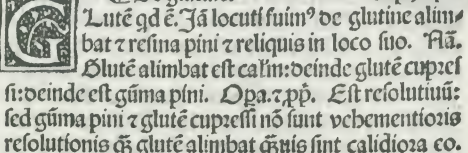 GLutē qd ē. Jā locuti fuimꝰ de glutine alim⸗
bat ⁊ resina pini ⁊ reliquis in loco suo. Nā.
Glutē alimbat est calin: deinde glutē cupres
si: deinde est gūma pini. Opa. ⁊ pp̄. Est resolutiuū:
sed gūma pini ⁊ glutē cupressi nō sunt vehementioris
resolutionis q̄ȝ glutē alimbat q̄ȝuis sint calidiora eo.